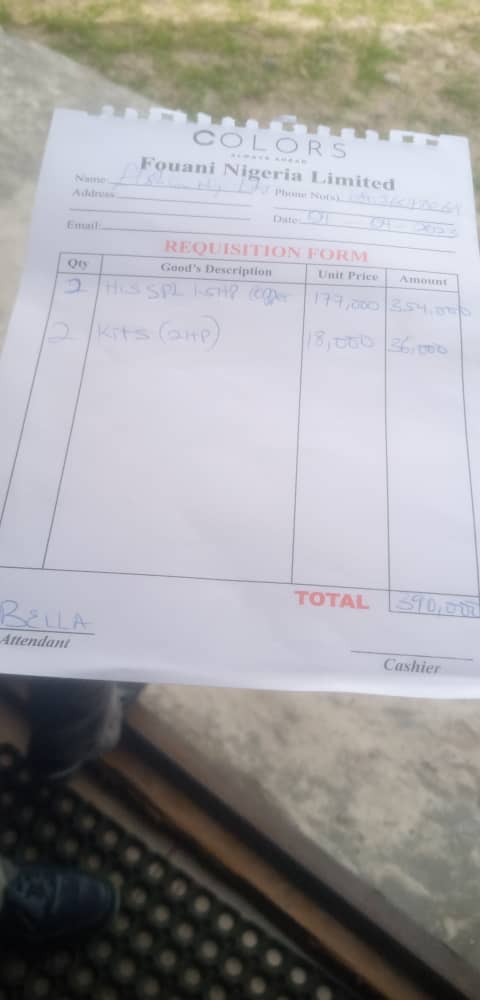 COLORS
ALWAYS AHEAD
Fouani Nigeria Limited
Name:
Phone No(s)
Address:
Date: 01 - 04 - 2023
Email:
REQUISITION FORM
Qty Good's Description Unit Price Amount
2 HIS SPL 1.5HP Copper 177,000 354,000
2 Kits (2HP) 18,000 36,000
TOTAL 390,000
BELLA
Attendant
Cashier